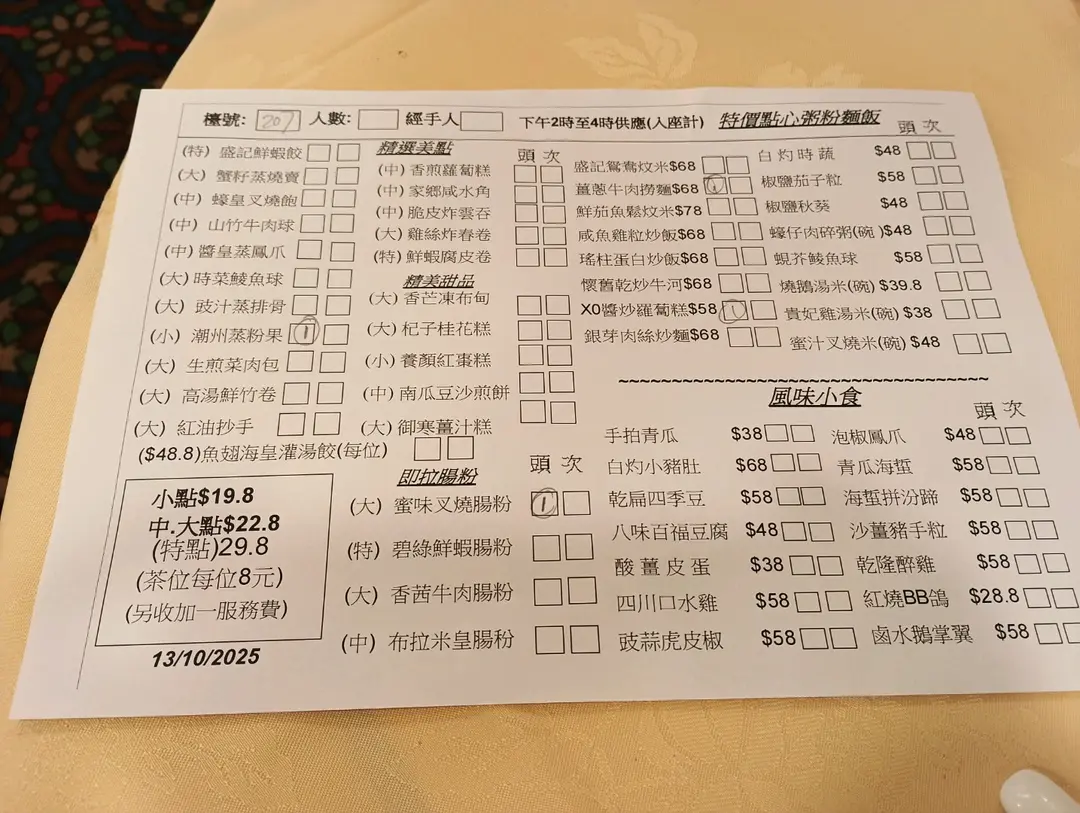 檯號: 207 人數: 經手人 下午2時至4時供應(入座計) 特價點心粥粉麵飯
(特) 盛記鮮蝦餃
(大) 蟹籽蒸燒賣
(中) 蠔皇叉燒飽
(中) 山竹牛肉球
(中) 醬皇蒸鳳爪
(大) 時菜鯪魚球
(大) 豉汁蒸排骨
(小) 潮州蒸粉果 1
(大) 生煎菜肉包
(大) 高湯鮮竹卷
(大) 紅油抄手
($48.8)魚翅海皇灌湯餃(每位)
小點$19.8
中.大點$22.8
(特點)29.8
(茶位每位8元)
(另收加一服務費)
13/10/2025
精選美點
頭 次
(中) 香煎蘿蔔糕
(中) 家鄉咸水角
(中) 脆皮炸雲吞
(大) 雞絲炸春卷
(特) 鮮蝦腐皮卷
精美甜品
(大) 香芒凍布甸
(大) 杞子桂花糕
(小) 養顏紅棗糕
(中) 南瓜豆沙煎餅
(大) 御寒薑汁糕
即拉腸粉
頭 次
(大) 蜜味叉燒腸粉 1
(特) 碧綠鮮蝦腸粉
(大) 香茜牛肉腸粉
(中) 布拉米皇腸粉
盛記鴛鴦炆米$68
薑蔥牛肉撈麵$68 1
鮮茄魚鬆炆米$78
咸魚雞粒炒飯$68
瑤柱蛋白炒飯$68
懷舊乾炒牛河$68
X0醬炒蘿蔔糕$58 1
銀芽肉絲炒麵$68
頭 次
白灼時蔬 $48
椒鹽茄子粒 $58
椒鹽秋葵 $48
蠔仔肉碎粥(碗 )$48
蜆芥鯪魚球 $58
燒鵝湯米(碗) $39.8
貴妃雞湯米(碗) $38
蜜汁叉燒米(碗) $48
~~~~~~~~~~~~~~~~~~~~~~~~~~~~~~~~~~~
風味小食
頭 次
手拍青瓜 $38
白灼小豬肚 $68
乾扁四季豆 $58
八味百福豆腐 $48
酸薑皮蛋 $38
四川口水雞 $58
豉蒜虎皮椒 $58
泡椒鳳爪 $48
青瓜海蜇 $58
海蜇拼汾蹄 $58
沙薑豬手粒 $58
乾隆醉雞 $58
紅燒BB鴿 $28.8
鹵水鵝掌翼 $58